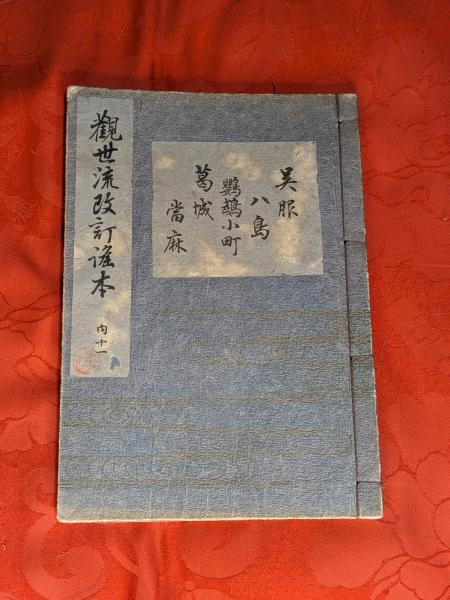 觀世流改訂謠本
内十一
呉服
八島
鸚鵡小町
葛城
當麻